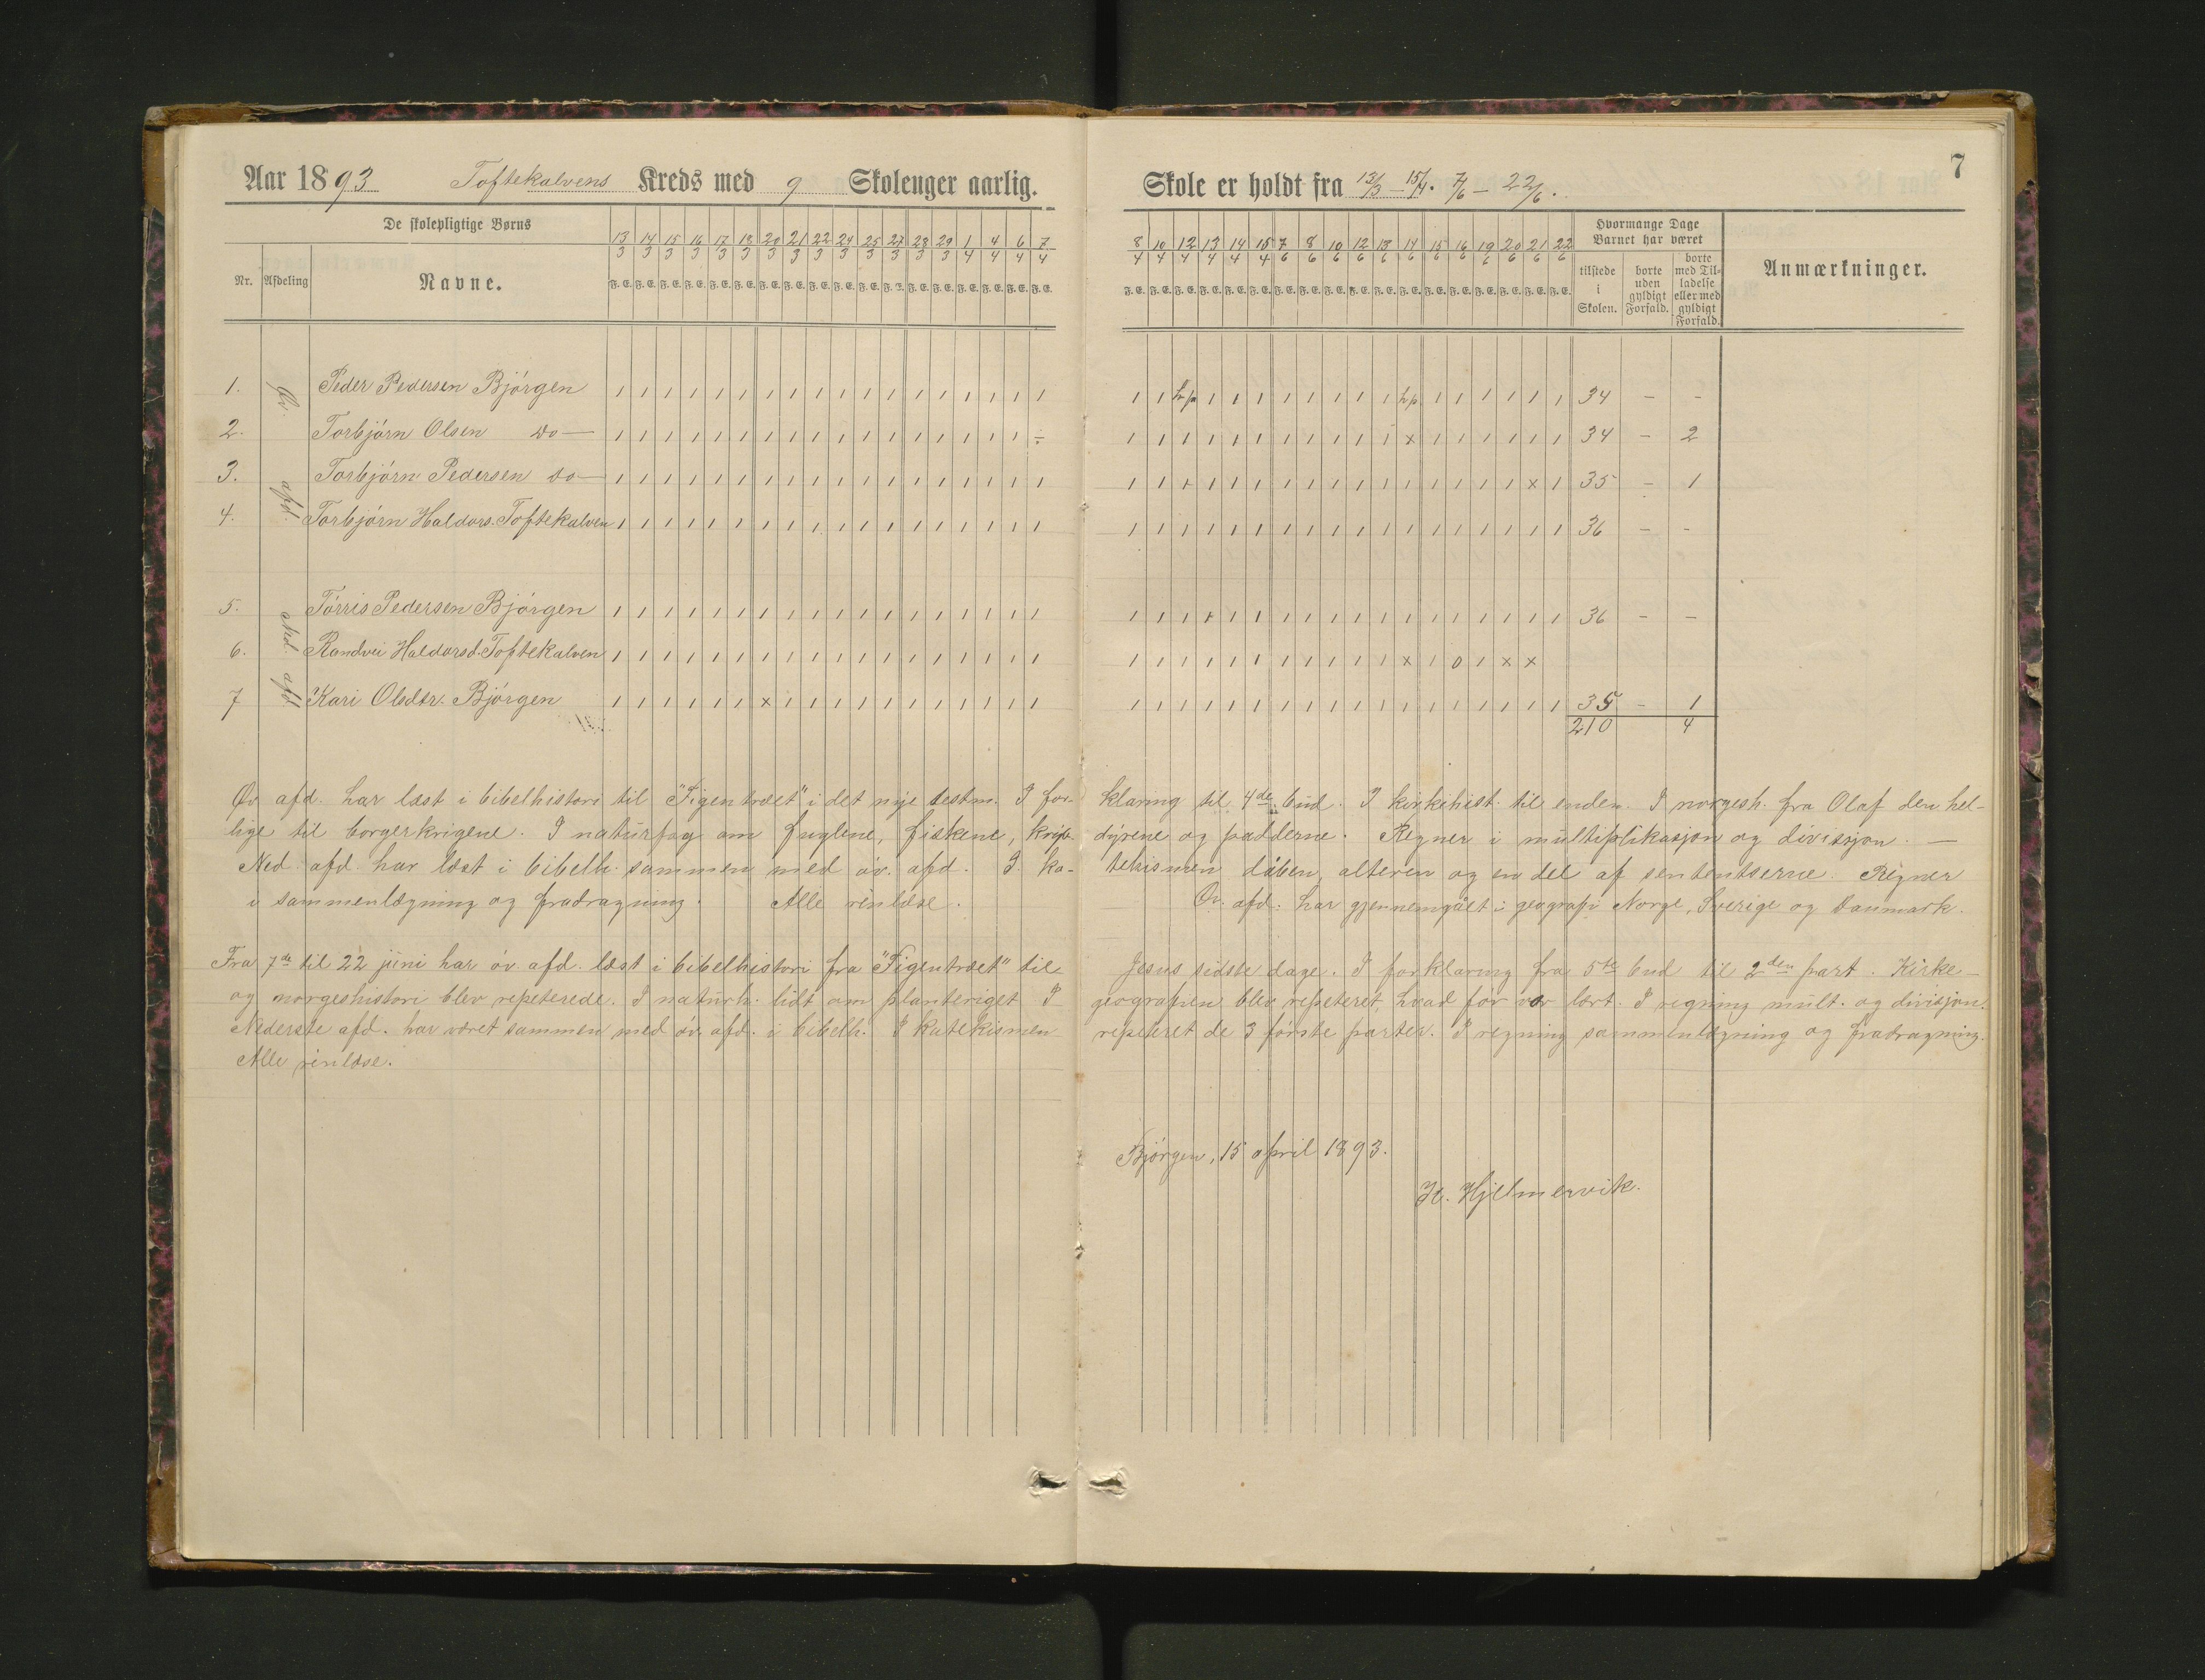 7
Aar 1893 Toftekalvens Kreds med 9 Skoleuger aarlig. Skole er holdt fra 13/3 - 15/4. 7/6 - 22/6.
De skolepligtige Børns
Nr. Afdeling Navne.
13/3 14/3 15/3 16/3 17/3 18/3 20/3 21/3 22/3 24/3 25/3 27/3 28/3 29/3 1/4 4/4 6/4 7/4
F.E. F.E. F.E. F.E. F.E. F.E. F.E. F.E. F.E. F.E. F.E. F.E. F.E. F.E. F.E. F.E. F.E. F.E.
8/4 10/4 12/4 13/4 14/4 15/4 7/6 8/6 10/6 12/6 13/6 14/6 15/6 16/6 19/6 20/6 21/6 22/6
F.E. F.E. F.E. F.E. F.E. F.E. F.E. F.E. F.E. F.E. F.E. F.E. F.E. F.E. F.E. F.E. F.E. F.E.
Hvormange Dage
Barnet har været
tilstede i Skolen.
borte uden gyldigt Forfald.
borte med Tilladelse eller med gyldigt Forfald.
Anmærkninger.
Øv. afd.
1. Peder Pedersen Bjørgen 1 1 1 1 1 1 1 1 1 1 1 1 1 1 1 1 1 1 1 1 hp 1 1 1 1 1 1 1 1 hp 1 1 1 1 1 1 34 - -
2. Torbjørn Olsen do — 1 1 1 1 1 1 1 1 1 1 1 1 1 1 1 1 1 ÷ 1 1 1 1 1 1 1 1 1 1 1 x 1 1 1 1 1 1 34 - 2
3. Torbjørn Pedersen do — 1 1 1 1 1 1 1 1 1 1 1 1 1 1 1 1 1 1 1 1 1 1 1 1 1 1 1 1 1 1 1 1 1 1 x 1 35 - 1
4. Torbjørn Haldors. Toftekalven 1 1 1 1 1 1 1 1 1 1 1 1 1 1 1 1 1 1 1 1 1 1 1 1 1 1 1 1 1 1 1 1 1 1 1 1 36 - -
Ned. afd.
5. Tørris Pedersen Bjørgen 1 1 1 1 1 1 1 1 1 1 1 1 1 1 1 1 1 1 1 1 1 1 1 1 1 1 1 1 1 1 1 1 1 1 1 1 36 - -
6. Randvei Haldorsd. Toftekalven 1 1 1 1 1 1 1 1 1 1 1 1 1 1 1 1 1 1 1 1 1 1 1 1 1 1 1 1 1 x 1 0 1 x x
7 Kari Olsdtr. Bjørgen 1 1 1 1 1 1 x 1 1 1 1 1 1 1 1 1 1 1 1 1 1 1 1 1 1 1 1 1 1 1 1 1 1 1 1 1 35 - 1
210 4
Øv. afd. har læst i bibelhistori til "Figentræet" i det nye testm. I forklaring til 4de bud. I kirkehist. til enden. I norgesh. fra Olaf den hel-
lige til borgerkrigene. I naturfag om fuglene, fiskene, krybdyrene og padderne. Regner i multiplikasjon og divisjon. —
Ned. afd. har læst i bibelh. sammen med øv. afd. I katekismen dåben, alteren og en del af sententserne. Regner
i sammenlægning og fradragning. Alle rinlæse. Øv. afd. har gjennemgået i geografi Norge, Sverige og Danmark.
Fra 7de til 22 juni har øv. afd. læst i bibelhistori fra "Figentræet" til Jesus sidste dage. I forklaring fra 5te bud til 2den part. Kirke-
og norgeshistori blev repeterede. I naturh. lidt om planteriget I geografien blev repeteret, hvad før var lært. I regning mult. og divisjon.
Nederste afd. har været sammen med øv. afd. i bibelh. I katekismen repeteret de 3 første parter. I regning sammenlægning og fradragning.
Alle rinlæse.
Bjørgen, 15 april 1893.
H. Hjelmervik.